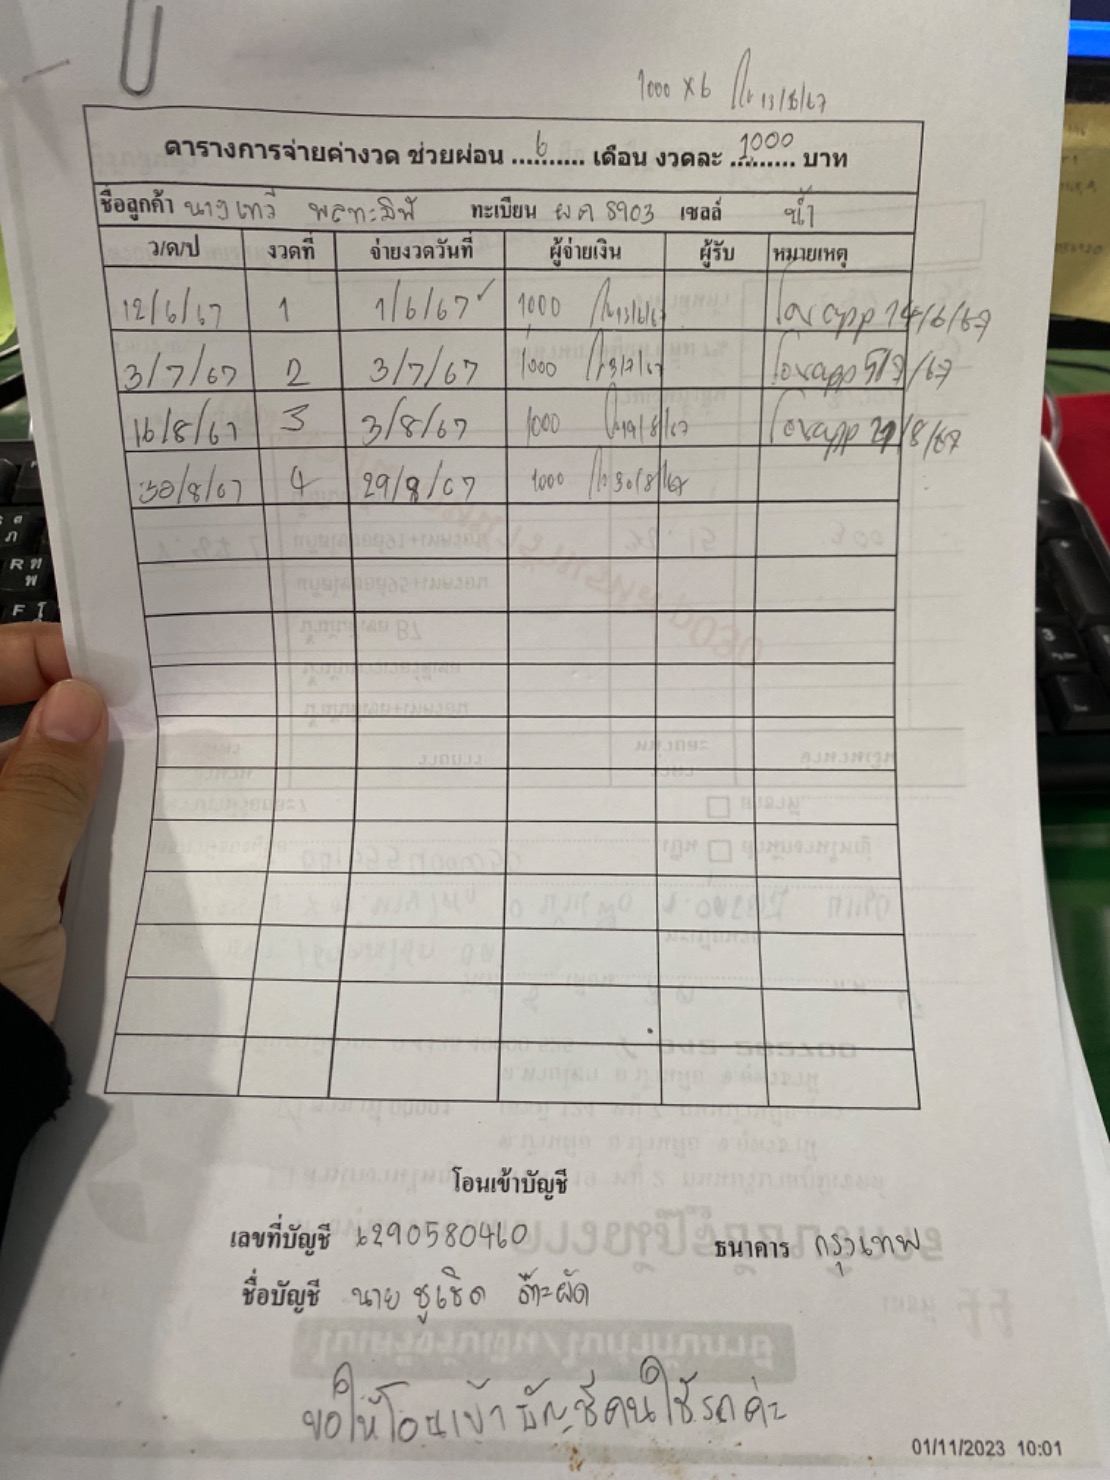 1000 x 6 13/6/67
ตารางการจ่ายค่างวด ช่วยผ่อน ....6.... เดือน งวดละ ..1000.. บาท
ชื่อลูกค้า นางเทวี ทะเบียน ผค 8903 เซลล์ น้ำ
ว/ด/ป งวดที่ จ่ายงวดวันที่ ผู้จ่ายเงิน ผู้รับ หมายเหตุ
12/6/67 1 1/6/67 ✓ 1000 13/6/67 โอน app 14/6/67
3/7/67 2 3/7/67 1000 3/7/67 โอน app 5/7/67
16/8/67 3 3/8/67 1000 19/8/67 โอน app 21/8/67
30/8/67 4 29/8/67 1000 30/8/67
โอนเข้าบัญชี
เลขที่บัญชี 6290580460 ธนาคาร กรุงเทพ
ชื่อบัญชี นาย ชูเชิด
ขอให้โอนเข้าบัญชีคนใช้รถค่ะ
01/11/2023 10:01